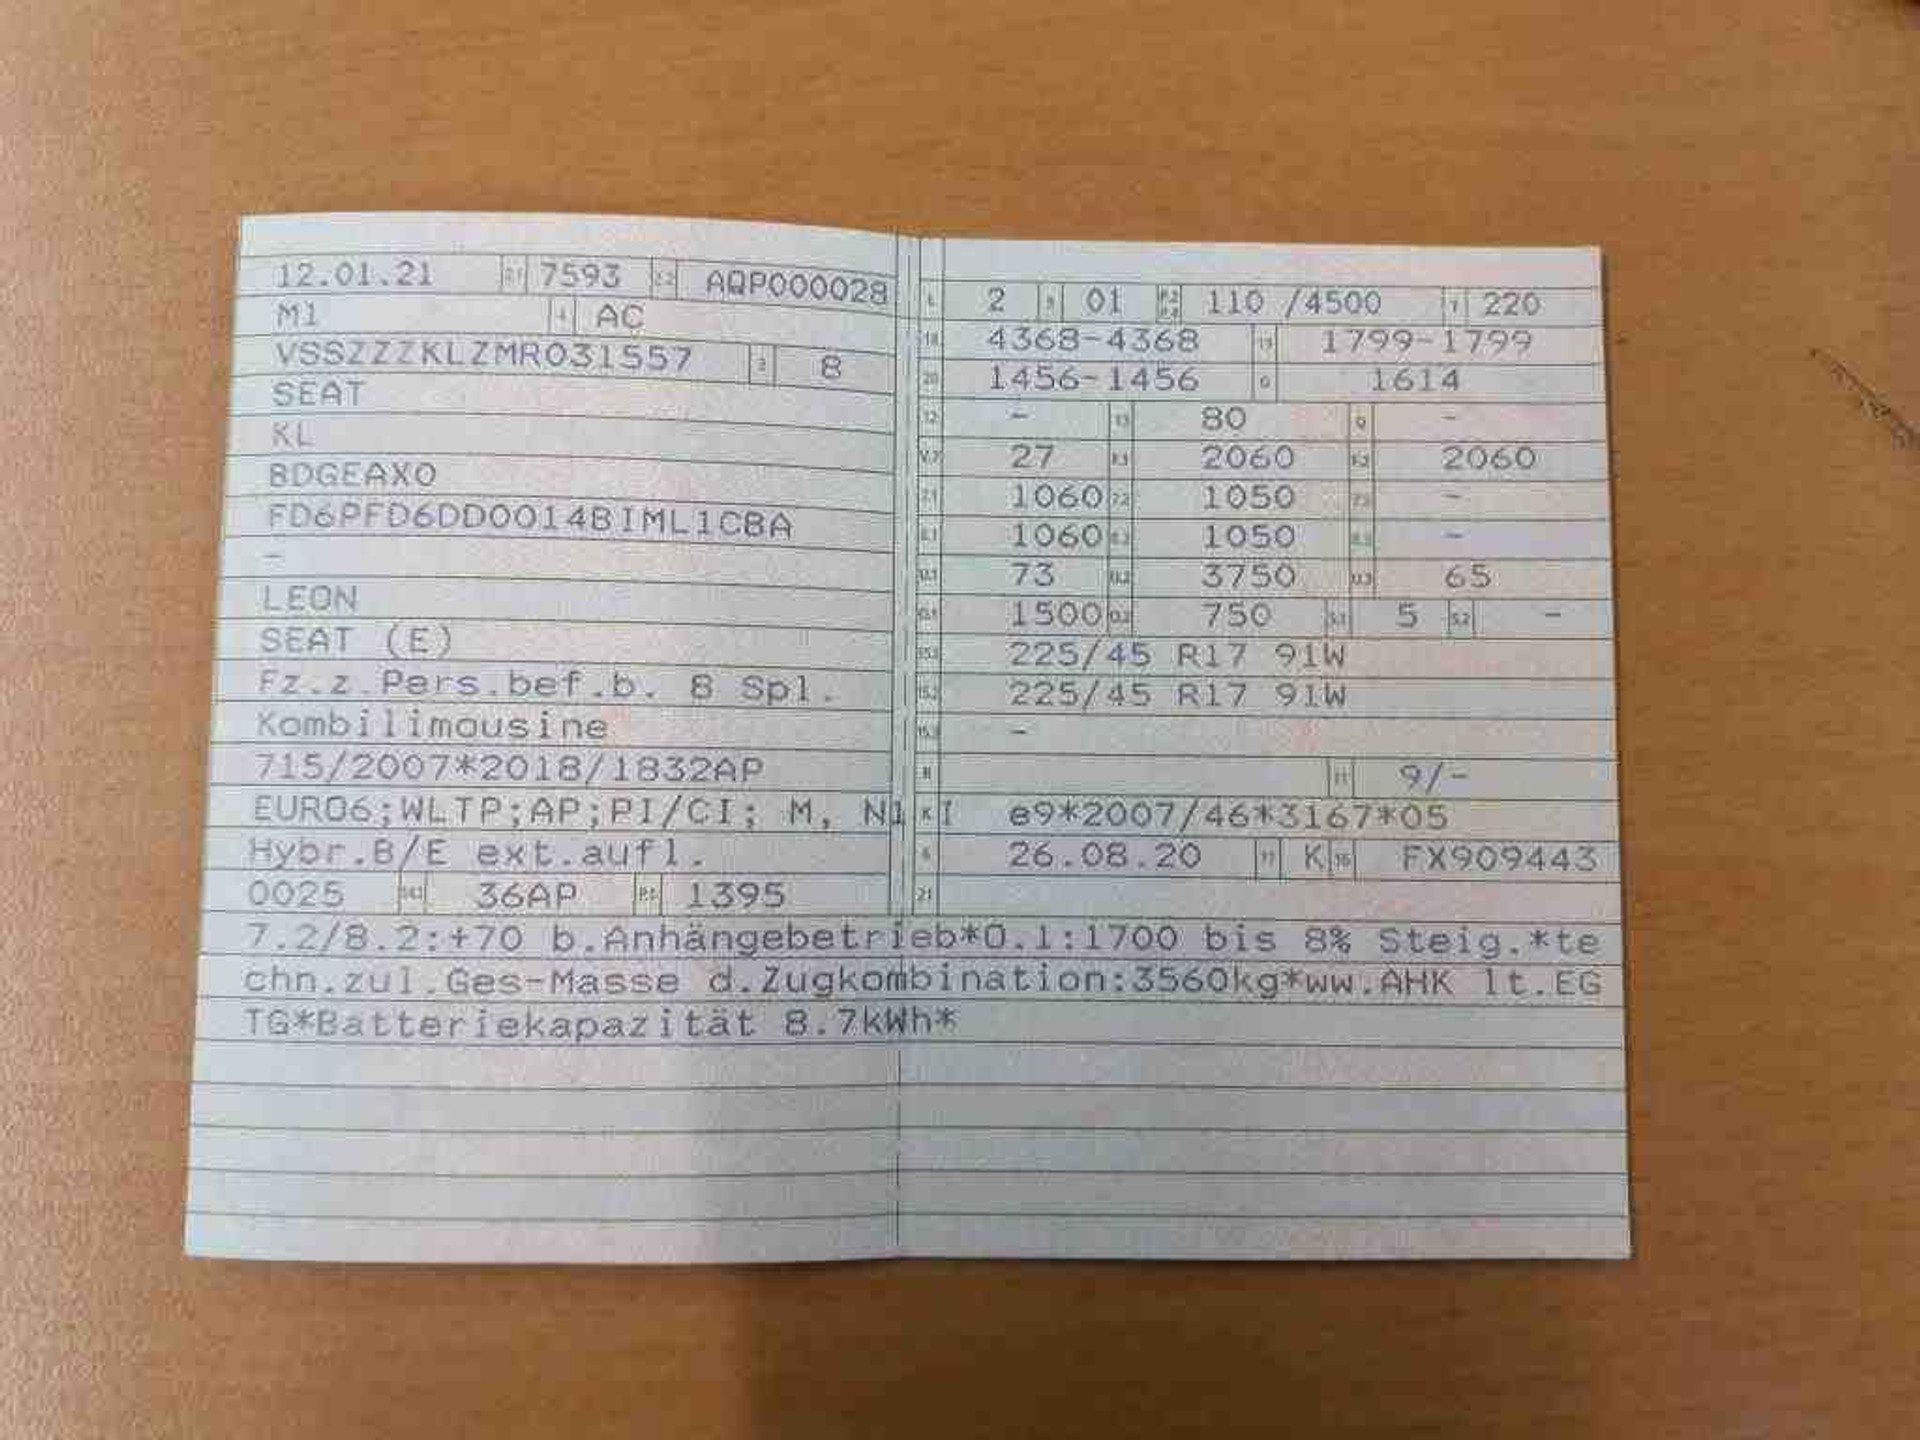 12.01.21 2.1 7593 2.2 AQP000028
M1 4 AC
VSSZZZKLZMR031557 3 8
SEAT
KL
BDGEAX0
FD6PFD6DD0014BIML1CBA
-
LEON
SEAT (E)
Fz.z.Pers.bef.b. 8 Spl.
Kombilimousine
715/2007*2018/1832AP
EURO6;WLTP;AP;PI/CI; M, N1 I
Hybr.B/E ext.aufl.
0025 14.1 36AP P.1 1395
L 2 9 01 P.2 P.4 110 /4500 T 220
18 4368-4368 19 1799-1799
20 1456-1456 G 1614
12 - 13 80 Q -
V.7 27 F.1 2060 F.2 2060
7.1 1060 7.2 1050 7.3 -
8.1 1060 8.2 1050 8.3 -
U.1 73 U.2 3750 U.3 65
O.1 1500 O.2 750 S.1 5 S.2 -
15.1 225/45 R17 91W
15.2 225/45 R17 91W
15.3 -
R 11 9/-
K e9*2007/46*3167*05
6 26.08.20 17 K 16 FX909443
21
7.2/8.2:+70 b.Anhängebetrieb*O.1:1700 bis 8% Steig.*te
chn.zul.Ges-Masse d.Zugkombination:3560kg*ww.AHK lt.EG
TG*Batteriekapazität 8.7kWh*